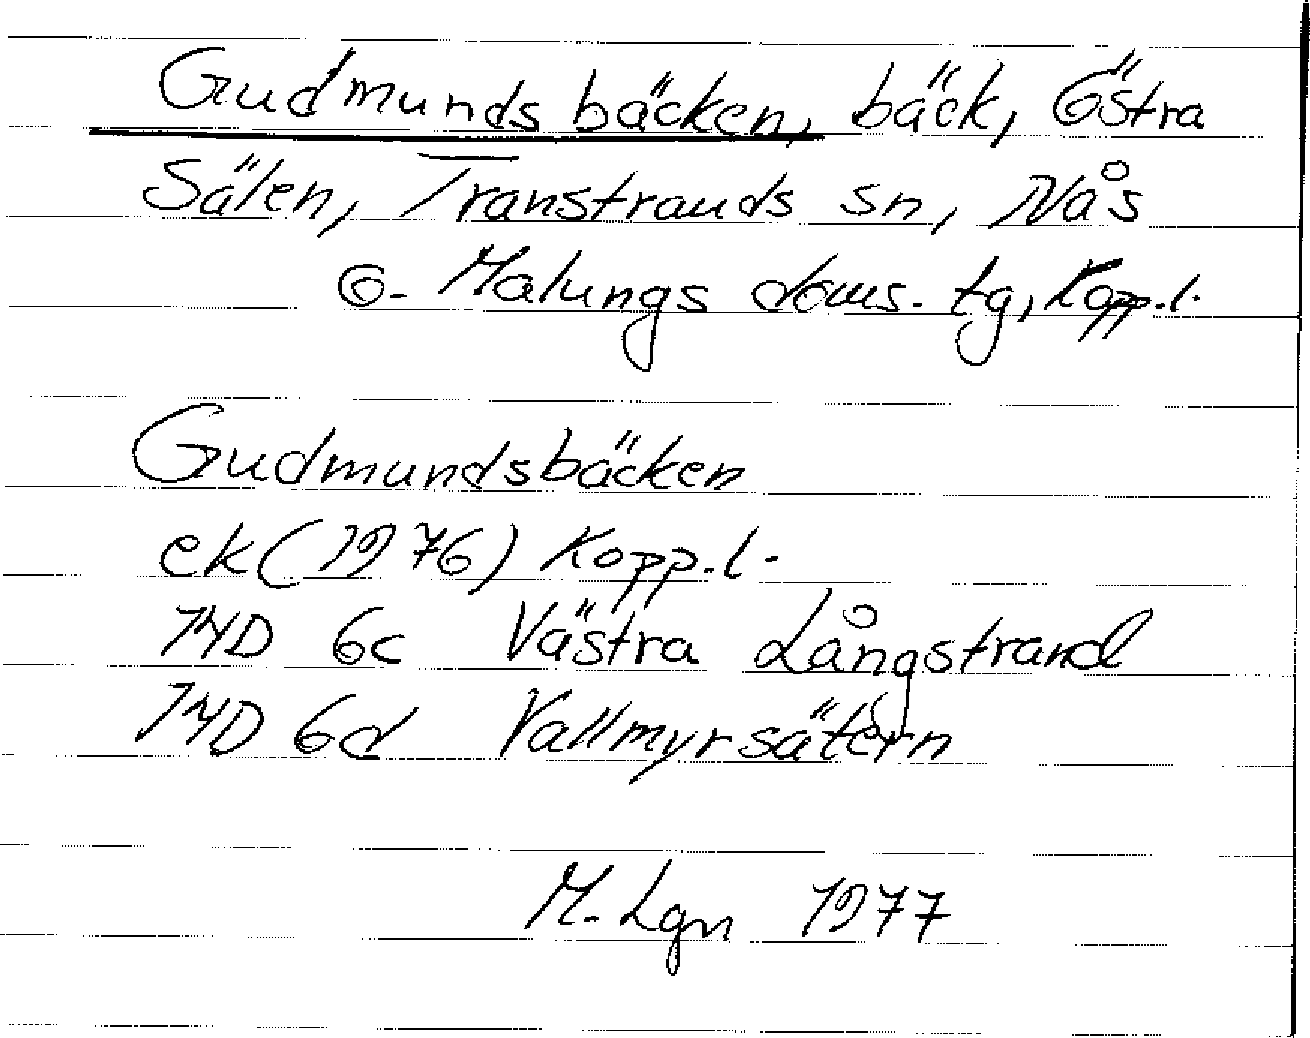 Gudmundsbäcken, bäck, Östra
Sälen, Transtrands sn, Nås
o. Malungs doms. tg, Kopp.l.
Gudmundsbäcken
ek (1976) Kopp.l.
14D 6c Västra Långstrand
14D 6d Vallmyrsätern
M. Lgn 1977